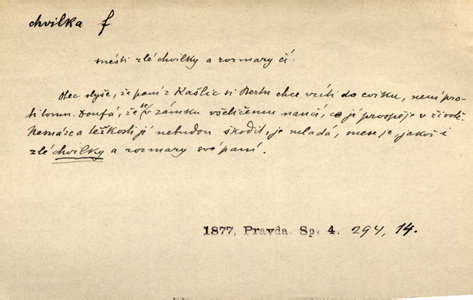 chvilka f
nésti zlé chvilky a rozmary čí
Otec slyše, že paní z Kašlic si Bertu chce vzíti do cviku, není pro-
ti tomu. Doufá, že se v zámku všeličemu naučí, co jí prospěje v životě.
Nemnohá těžkosti jí nebudou škodit, je mladá, nese je, jakož i
zlé chvilky a rozmary své paní.
1877, Pravda. Sp. 4. 294, 14.